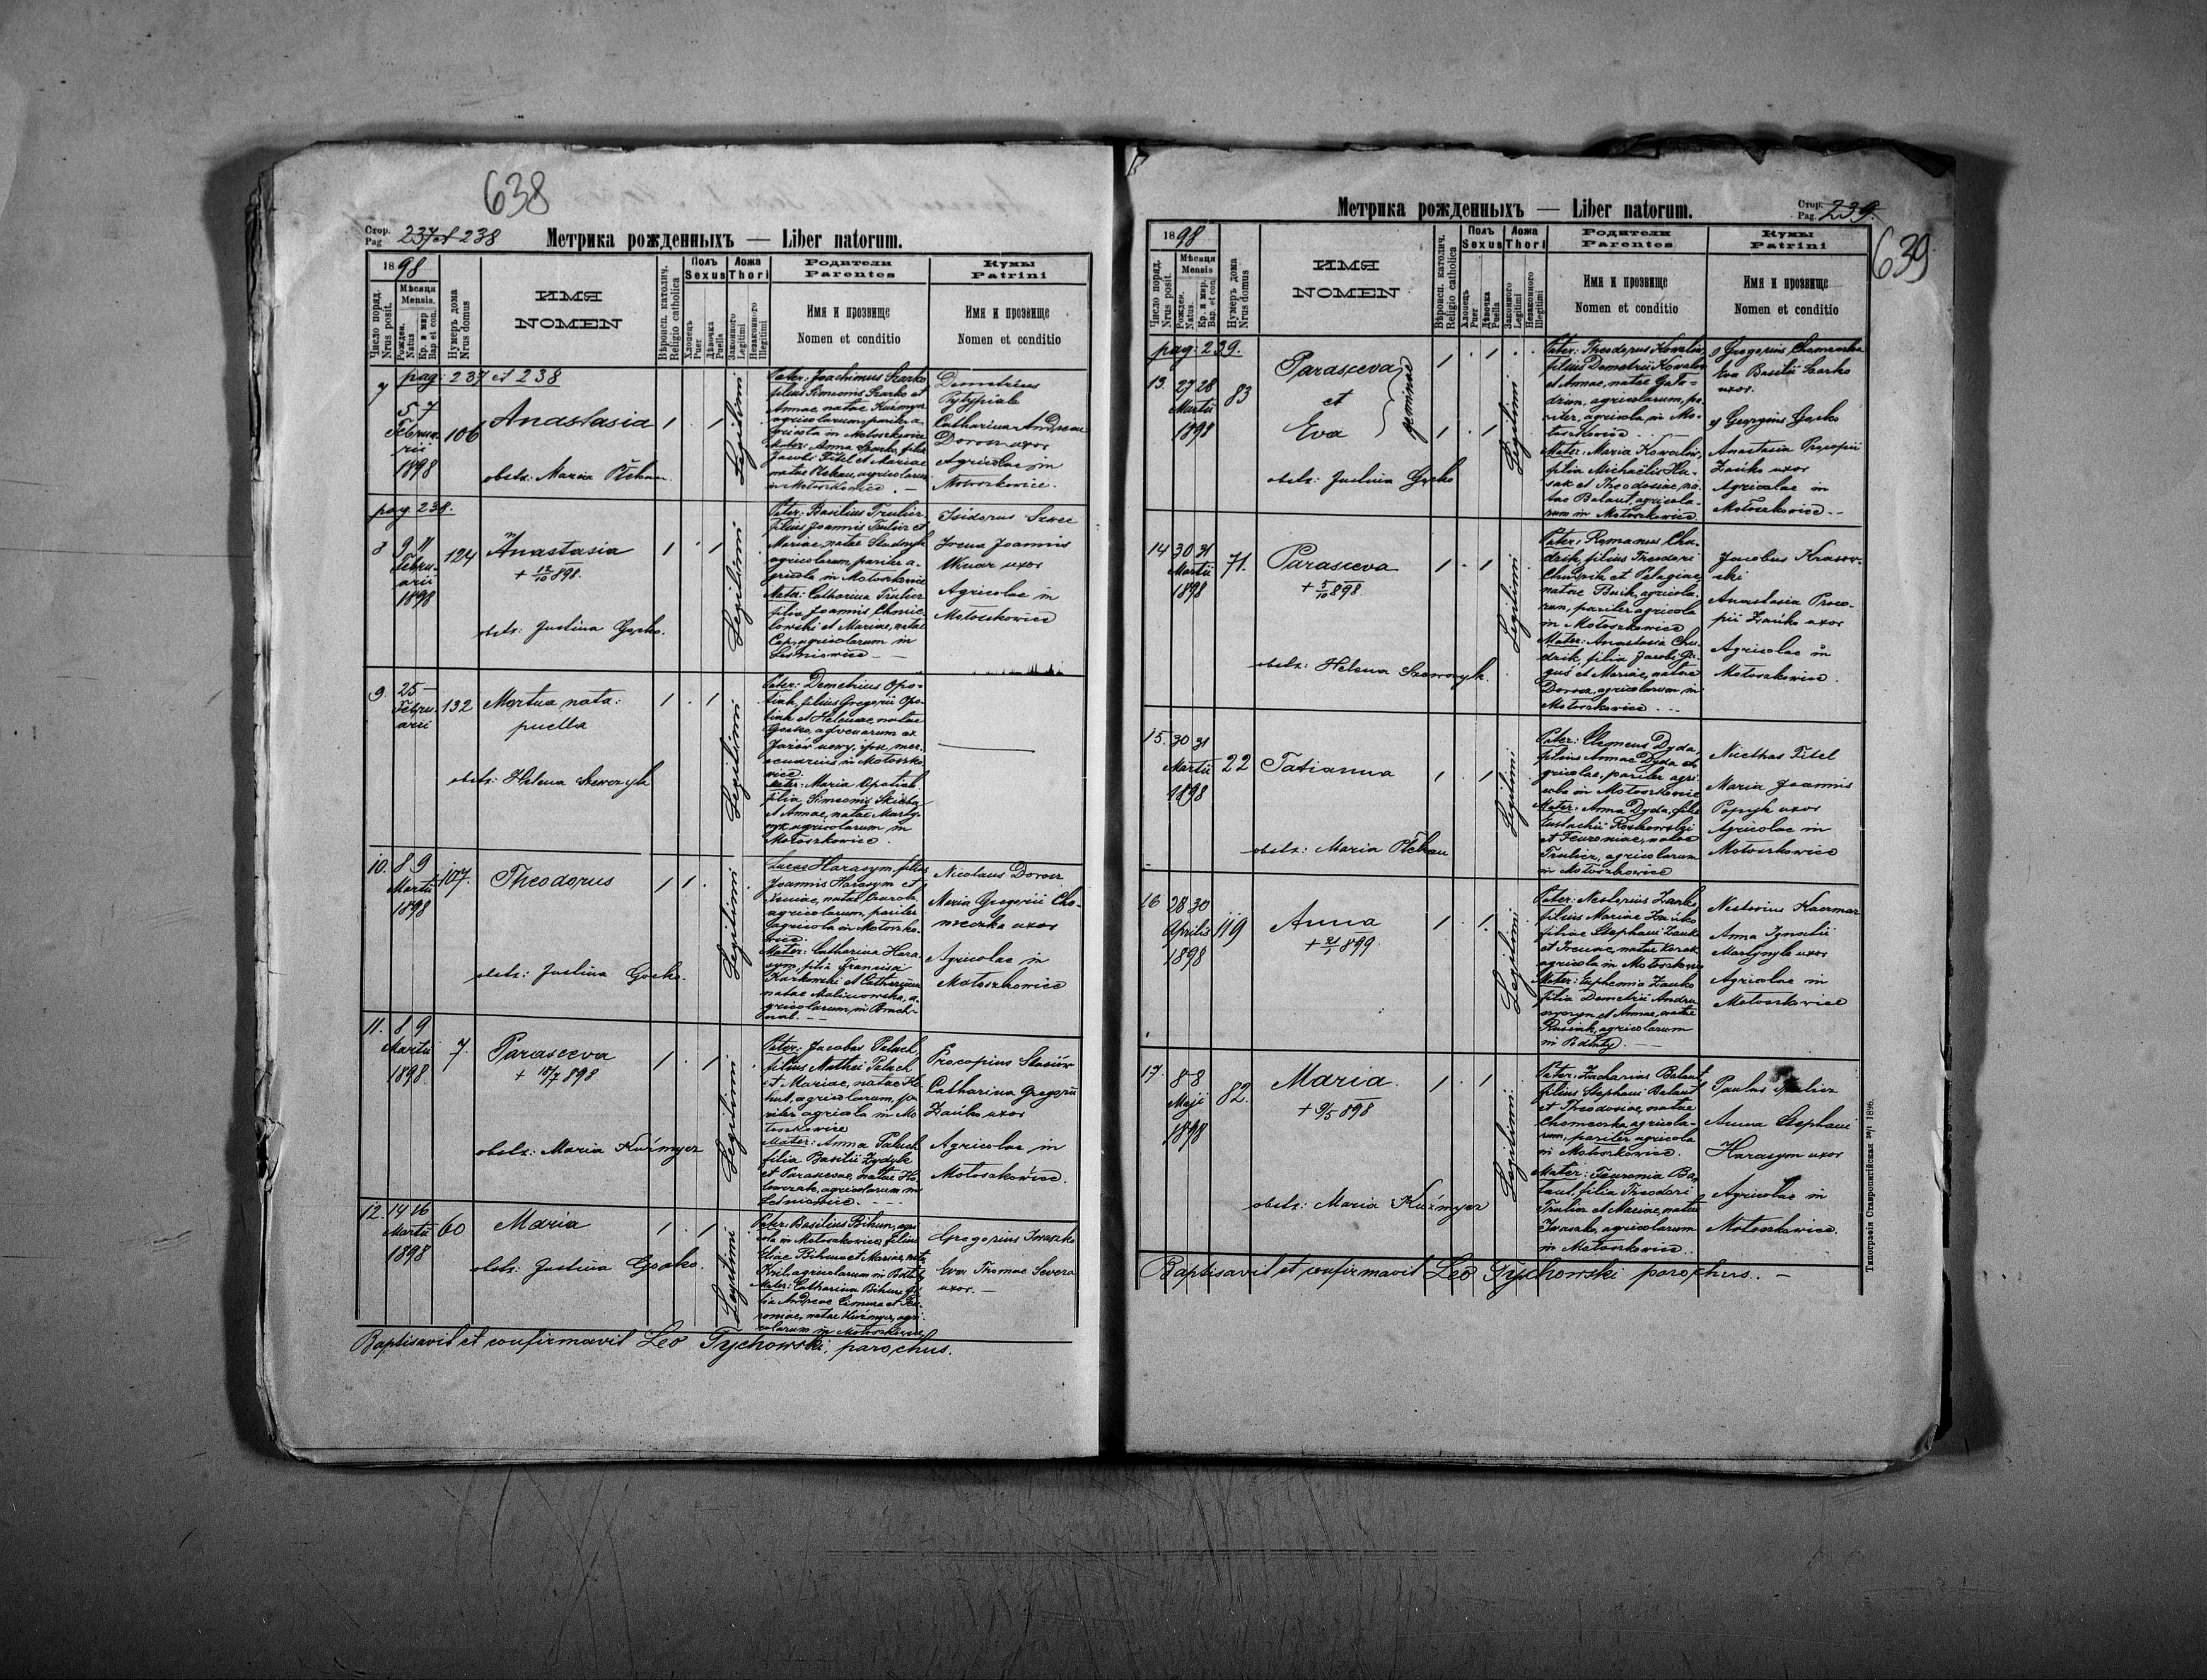 638
Стор.
Pag 237 et 238
Метрика рожденныхъ — Liber natorum.
1898
Число поряд.
Nrus posit.
Мѣсяця
Mensis.
Рожден.
Natus
Кр. и мир
Bap. et con.
Нумеръ дома
Nrus domus
ИМЯ
NOMEN
Вѣроисп. католич.
Religio catholica
Полъ
Sexus
Хлопець
Puer
Дѣвочка
Puella
Ложа
Thori
Законного
Legitimi
Незаконного
Illegitimi
Родители
Parentes
Имя и прозвище
Nomen et conditio
Кумы
Patrini
Имя и прозвище
Nomen et conditio
pag: 237 et 238
7
5 7
Februa-
rii
1898
106
Anastasia
obstx: Maria Ptchau
1 1
Legitimi
Pater: Joachimus Szarko
filius Simeonis Szarko et
Annae, natae Kuźmycz
agricolarum, pariter a-
gricola in Motoszkowice
Mater: Anna Szarko, filia
Jacobi Titel et Mariae
natae Ptchau, agricolarum
in Motoszkowice. —
Demetrius
Catharina Andreae
Dorosz uxor
Agricolae in
Motoszkowice.
pag. 238.
8
9 11
Febru-
arii
1898
124
Anastasia
+ 12/10 898.
obstx: Justina Gocko.
1 1
Legitimi
Pater: Basilius Trulicz
filius Joannis Trulicz et
Mariae, natae Studnyk
agricolarum, pariter a-
gricola in Motoszkowice
Mater: Catharina Trulicz
filia Joannis Chmie-
lowski et Mariae, natae
Cap, agricolarum in
Leśniowice —
Isidorus Szwec
Irena Joannis
uxor
Agricolae in
Motoszkowice
9.
25 —
Febru-
arii
132
Mortua nata:
puella
obstx: Helena Szewczyk
1 1
Legitimi
Pater: Demetrius Opo-
tiak, filius Gregorii Opo-
tiak et Helenae, natae
Gocko, advenarum ex
Jazów nowy, ipse mer-
cenarius in Motoszko-
wice.
Mater: Maria Opotiak
filia Simeonis Skirka
et Annae, natae Marty-
nyk agricolarum in
Motoszkowice.
10.
8 9
Martii
1898
107.
Theodorus
obstx: Justina Gocko.
1 1
Legitimi
Lucas Harasym, filius
Joannis Harasym et
agricolarum, pariter
agricola in Motoszko-
wice.
Mater: Catharina Hara-
sym, filia Francisci
Karkowski et Catharinae
natae Malinowska, a-
gricolarum, in
Nicolaus Dorosz
Maria Gregorii Cho-
meczka uxor
Agricolae in
Motoszkowice
11.
8 9
Martii
1898.
7.
Parasceva
+ 10/7 898
obstx: Maria Kuźmycz
1 1
Legitimi
Pater: Jacobus Paluch,
filius Mathei Paluch
et Mariae, natae Ko-
hut, agricolarum, pa-
riter agricola in Mo-
toszkowice
Mater: Anna Paluch
filia Basilii Zydyk
et Parascevae, natae Ko-
lowczak, agricolarum in
Leśniowice. —
Procopius Stasiów
Catharina Gregorii
Zańko uxor
Agricolae in
Motoszkowice.
12.
14 16
Martii
1898
60
Maria
obstx: Justina Gocko.
1 1
Legitimi
Pater: Basilius Bihun, agri-
cola in Motoszkowice, filius
Eliae Bihun et Mariae, nata
Kril, agricolarum in
Mater: Catharina Bihun, fi-
lia Andreae Cimura et Feu-
roniae, natae Kuźmycz, agri-
colarum in Motoszkowice
Gregorius Iwaszko
Eva Thomae Severa
uxor. —
Baptisavit et confirmavit Leo Tychowski, parochus.
Метрика рожденныхъ — Liber natorum.
Стор.
Pag. 239.
639
1898
Число поряд.
Nrus posit.
Мѣсяця
Mensis
Рожден.
Natus.
Кр. и мир.
Bap. et con.
Нумеръ дома
Nrus domus
ИМЯ
NOMEN
Вѣроисп. католич.
Religio catholica
Полъ
Sexus
Хлопець
Puer
Дѣвочка
Puella
Ложа
Thori
Законного
Legitimi
Незаконного
Illegitimi
Родители
Parentes
Имя и прозвище
Nomen et conditio
Кумы
Patrini
Имя и прозвище
Nomen et conditio
pag: 239.
13.
27 28
Martii
1898
83
Parasceva
et
Eva
geminae
obstx: Justina Gocko
1 1
1 1
Legitimi
Pater: Theodorus Kowalów,
filius Demetrii Kowalów
et Annae, natae Gała-
dzun, agricolarum, pa-
riter, agricola, in Mo-
toszkowice. —
Mater: Maria Kowalów,
filia Michaëlis Hu-
sak et Theodosiae, na-
tae Balaut, agricola-
rum in Motoszkowice
Gregorius Chomeczka
Eva Basilii Szarko
uxor.
Georgius Gocko
Anastasia Procopii
Zańko uxor
Agricolae in
Motoszkowice —
14
30 31
Martii
1898
71.
Parasceva
+ 5/10 898.
obstx: Helena Szewczyk.
1 1
Legitimi
Pater: Romanus Chu-
dzik, filius Theodori
Chudzik et Pelagiae,
natae Busik, agricola-
rum, pariter agricola
in Motoszkowice
Mater: Anastasia Chu-
dzik, filia Jacobi Gi-
gus et Mariae, natae
Dorosz, agricolarum in
Motoszkowice. —
Jacobus Krasow-
ski
Anastasia Proco-
pii Zańko uxor
Agricolae in
Motoszkowice.
15.
30 31
Martii
1898
22
Tatianna
obstx: Maria Ptchau
1 1
Legitimi
Pater: Clemens Dyda,
filius Annae Dyda a-
gricolae, pariter agri-
cola in Motoszkowice
Mater: Anna Dyda, filia
Eustachii Roskowski
et Feuroniae, natae
Trulicz, agricolarum
in Motoszkowice
Nicethas Titel
Maria Joannis
Popyk uxor
Agricolae in
Motoszkowice
16
28 30
Aprilis
1898
119
Anna
+ 21/1 899
1 1
Legitimi
Pater: Nestorius Zańko,
filius Mariae Zańko
filiae Stephani Zańko
et Irenae, natae Kozak
agricola in Motoszkowice
Mater: Euphemia Zańko
filia Demetrii Andru-
et Annae, natae
Rusiak, agricolarum
in
Nestorius Kaczmar
Anna Ignatii
Martynyk uxor
Agricolae in
Motoszkowice
17.
8 8
Maji
1898
82.
Maria.
+ 9/5 898
obstx: Maria Kuźmycz
1 1
Legitimi
Pater: Zacharias Balaut,
filius Stephani Balaut
et Theodosiae, natae
Chomeczka agricola-
rum, pariter agricola
in Motoszkowice.
Mater: Feuronia Ba-
laut, filia Theodori
Trulicz et Mariae, natae
Iwaszko, agricolarum
in Motoszkowice.
Paulus Trulicz
Anna Stephani
Harasym uxor
Agricolae in
Motoszkowice.
Baptisavit et confirmavit Leo Tychowski parochus. —
Типографія Ставропигійская 1896.